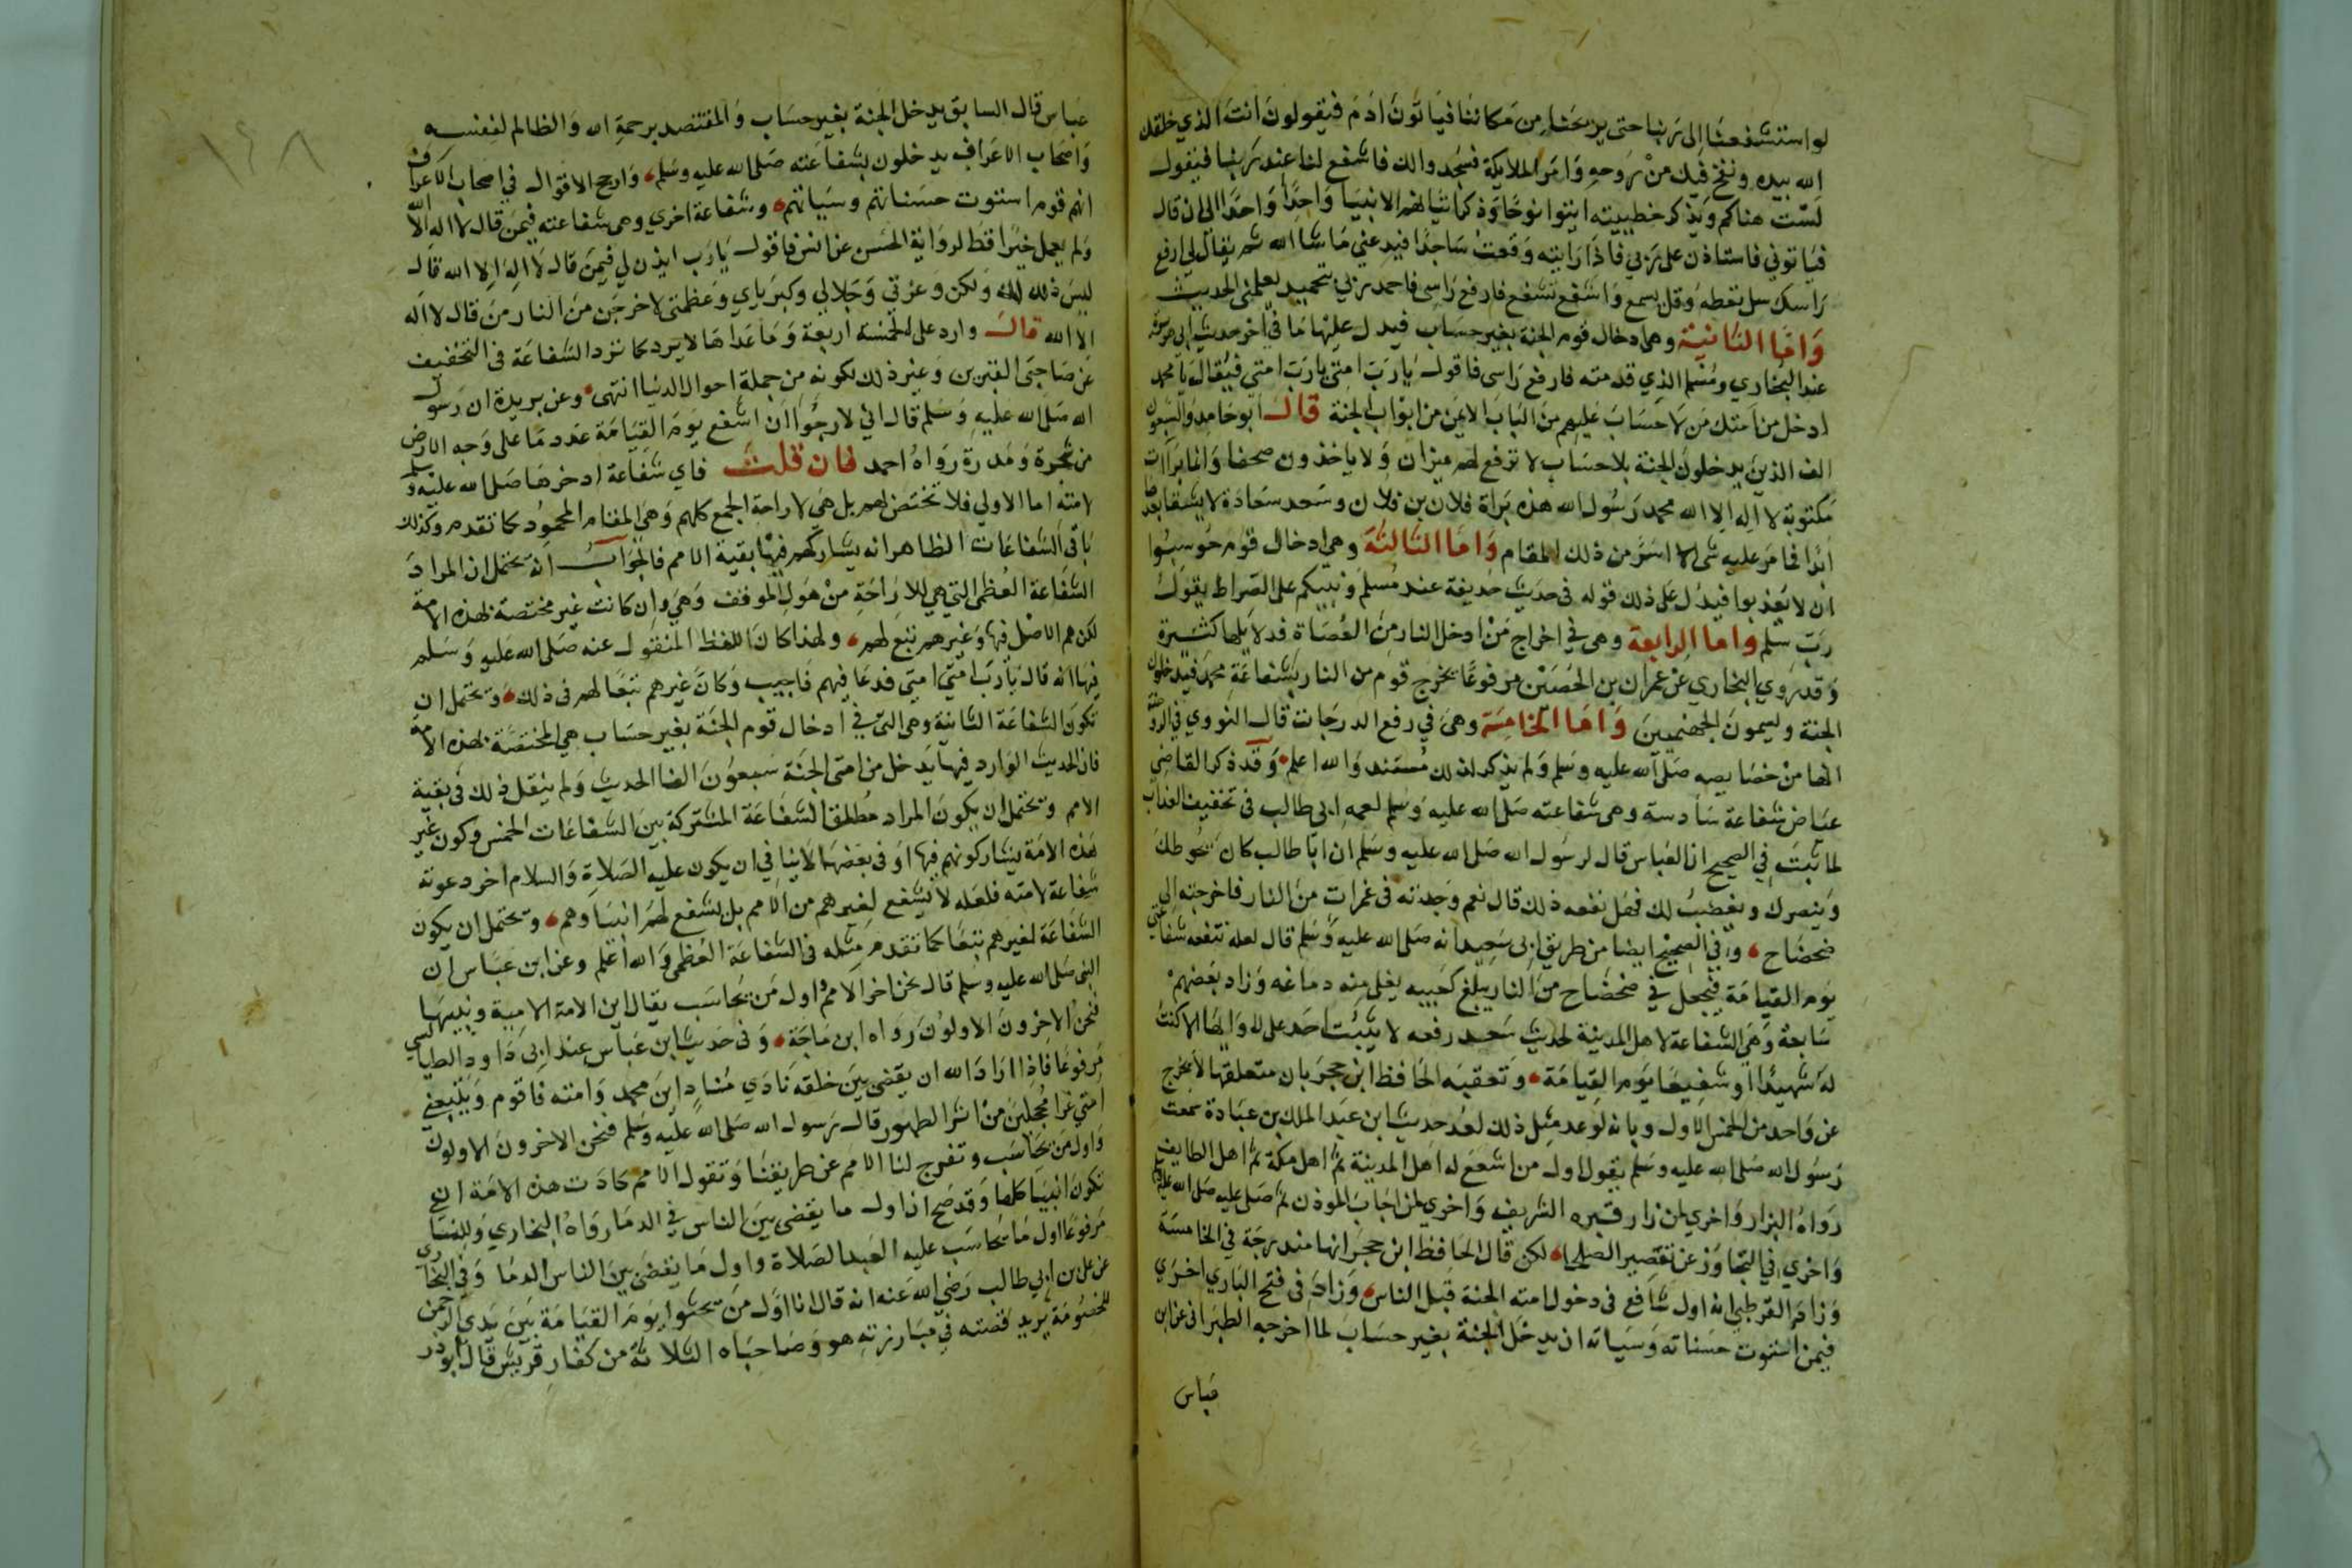 لو استشفعنا الى ربنا حتى يريحنا من مكاننا فياتون ادم فيقولون انت الذي خلقك
الله بيده ونفخ فيك من روحه وامر الملايكة فسجدوا لك فاشفع لنا عند ربنا فيقول
لست هناكم ويذكر خطييته ايتوا نوحا وذكر اتيانهم الانبيا واحدا واحدا الى ان قال
فياتوني فاستاذن على ربي فاذا رايته وقعت ساجدا فيدعني ما شا الله ثم يقال لي ارفع
راسك سل تعطه وقل يسمع واشفع تشفع فارفع راسي فاحمد ربي بتحميد يعلمني الحديث
واما الثانية وهي ادخال قوم الجنة بغير حساب فيدل عليها ما في اخر حديث ابي هريرة
عند البخاري ومسلم الذي قدمته فارفع راسي فاقول يا رب امتي يا رب امتي فيقال يا محمد
ادخل من امتك من لا حساب عليهم من الباب الايمن من ابواب الجنة قال ابو حامد والسبعون
الف الذين يدخلون الجنة بلا حساب لا ترفع لهم ميزان ولا ياخذون صحفا وانما براات
مكتوبة لا اله الا الله محمد رسول الله هذه براة فلان بن فلان وسعد سعادة لا يشقا بعدها
ابدا فما مر عليه شي الا اسر من ذلك المقام واما الثالثة وهي ادخال قوم حوسبوا
ان لا يعذبوا فيدل على ذلك قوله في حديث حذيفة عند مسلم ونبيكم على الصراط يقول
رب سلم واما الرابعة وهي في اخراج من ادخل النار من العصاة فدلايلها كثيرة
وقد روي البخاري عن عمران بن الحصين مرفوعا يخرج قوم من النار بشفاعة محمد فيدخلون
الجنة ويسمون الجهنميين واما الخامسة وهي في رفع الدرجات قال النووي في الروضة
انها من خصايصه صلى الله عليه وسلم ولم يذكر لذلك مستندا والله اعلم وقد ذكر القاضي
عياض شفاعة سادسة وهي شفاعته صلى الله عليه وسلم لعمه ابي طالب في تخفيف العذاب
لما ثبت في الصحيح ان العباس قال لرسول الله صلى الله عليه وسلم ان ابا طالب كان يحوطك
وينصرك ويغضب لك فهل نفعه ذلك قال نعم وجدته في غمرات من النار فاخرجته الى
ضحضاح وفي الصحيح ايضا من طريق ابي سعيد انه صلى الله عليه وسلم قال لعله تنفعه شفاعتي
يوم القيامة فيجعل في ضحضاح من النار يبلغ كعبيه يغلي منه دماغه وزاد بعضهم
سابعة وهي الشفاعة لاهل المدينة لحديث سعد رفعه لا يثبت احد على لاوايها الا كنت
له شهيدا او شفيعا يوم القيامة وتعقبه الحافظ ابن حجر بان متعلقها لا يخرج
عن واحد من الخمس الاول وبانه لو عد مثل ذلك لعد حديث ابن عبد الملك بن عبادة سمعت
رسول الله صلى الله عليه وسلم يقول اول من اشفع له اهل المدينة ثم اهل مكة ثم اهل الطايف
رواه البزار واخري لمن زار قبره الشريف واخري لمن اجاب الموذن ثم صلى عليه صلى الله عليه وسلم
واخري في التجاوز عن تقصير الصلحا لكن قال الحافظ ابن حجر انها مندرجة في الخامسة
وزاد القرطبي انه اول شافع في دخول امته الجنة قبل الناس وزاد في فتح الباري اخري
فيمن استوت حسناته وسياته ان يدخل الجنة بغير حساب لما اخرجه الطبراني عن ابن
عباس
عباس قال السابق يدخل الجنة بغير حساب والمقتصد برحمة الله والظالم لنفسه
واصحاب الاعراف يدخلون بشفاعته صلى الله عليه وسلم وارجح الاقوال في اصحاب الاعراف
انهم قوم استوت حسناتهم وسياتهم وشفاعة اخري وهي شفاعته فيمن قال لا اله الا الله
ولم يعمل خيرا قط لرواية الحسن عن انس فاقول يا رب ايذن لي فيمن قال لا اله الا الله قال
ليس ذلك لك ولكن وعزتي وجلالي وكبرياي وعظمتي لاخرجن من النار من قال لا اله
الا الله قال وارد على الخمسة اربعة وما عداها لا يرد كما نرد الشفاعة في التخفيف
عن صاحبي القبرين وغير ذلك لكونه من جملة احوال الدنيا انتهى وعن بريدة ان رسول
الله صلى الله عليه وسلم قال اني لارجوا ان اشفع يوم القيامة عدد ما على وجه الارض
من شجرة ومدرة رواه احمد فان قلت فاي شفاعة ادخرها صلى الله عليه وسلم
لامته اما الاولي فلا تختص لهم بل هي لاراحة الجمع كلهم وهي المقام المحمود كما تقدم وكذلك
باقي الشفاعات الظاهر انه يشاركهم فيها بقية الامم فالجواب انه يحتمل ان المراد
الشفاعة العظمى التي هي للاراحة من هول الموقف وهي وان كانت غير مختصة بهذه الامة
لكن هم الاصل فيها وغيرهم تبع لهم ولهذا كان اللفظ المنقول عنه صلى الله عليه وسلم
فيها انه قال يا رب امتي امتي فدعا فيهم فاجيب وكان غيرهم تبعا لهم في ذلك ويحتمل ان
تكون الشفاعة الثانية وهي التي في ادخال قوم الجنة بغير حساب هي المختصة بهذه الامة
فان الحديث الوارد فيها يدخل من امتي الجنة سبعون الفا الحديث ولم ينقل ذلك في بقية
الامم ويحتمل ان يكون المراد مطلق الشفاعة المشتركة بين الشفاعات الخمس وكون غير
هذه الامة يشاركونهم فيها او في بعضها لا ينافي ان يكون عليه الصلاة والسلام اخر دعوته
شفاعة لامته فلعله لا يشفع لغيرهم من الامم بل يشفع لهم انبياوهم ويحتمل ان يكون
الشفاعة لغيرهم تبعا كما تقدم مثله في الشفاعة العظمى والله اعلم وعن ابن عباس ان
النبي صلى الله عليه وسلم قال نحن اخر الامم واول من يحاسب يقال اين الامة الامية ونبيها
فنحن الاخرون الاولون رواه ابن ماجة وفي حديث ابن عباس عند ابي داود الطيالسي
مرفوعا فاذا اراد الله ان يقضي بين خلقه نادي مناد اين محمد وامته فاقوم ويتبعني
امتي غرا محجلين من اثر الطهور قال رسول الله صلى الله عليه وسلم فنحن الاخرون الاولون
واول من يحاسب وتفرج لنا الامم عن طريقنا وتقول الامم كادت هذه الامة ان
تكون انبيا كلها وقد صح ان اول ما يقضي بين الناس في الدما رواه البخاري وللنساي
مرفوعا اول ما يحاسب عليه العبد الصلاة واول ما يقضى بين الناس الدما وفي البخاري
عن علي بن ابي طالب رضي الله عنه انه قال انا اول من يحثوا يوم القيامة بين يدي الرحمن
للخصومة يريد قصته في مبارزته هو وصاحباه الثلاثة من كفار قريش قال ابو ذر
١٤٨